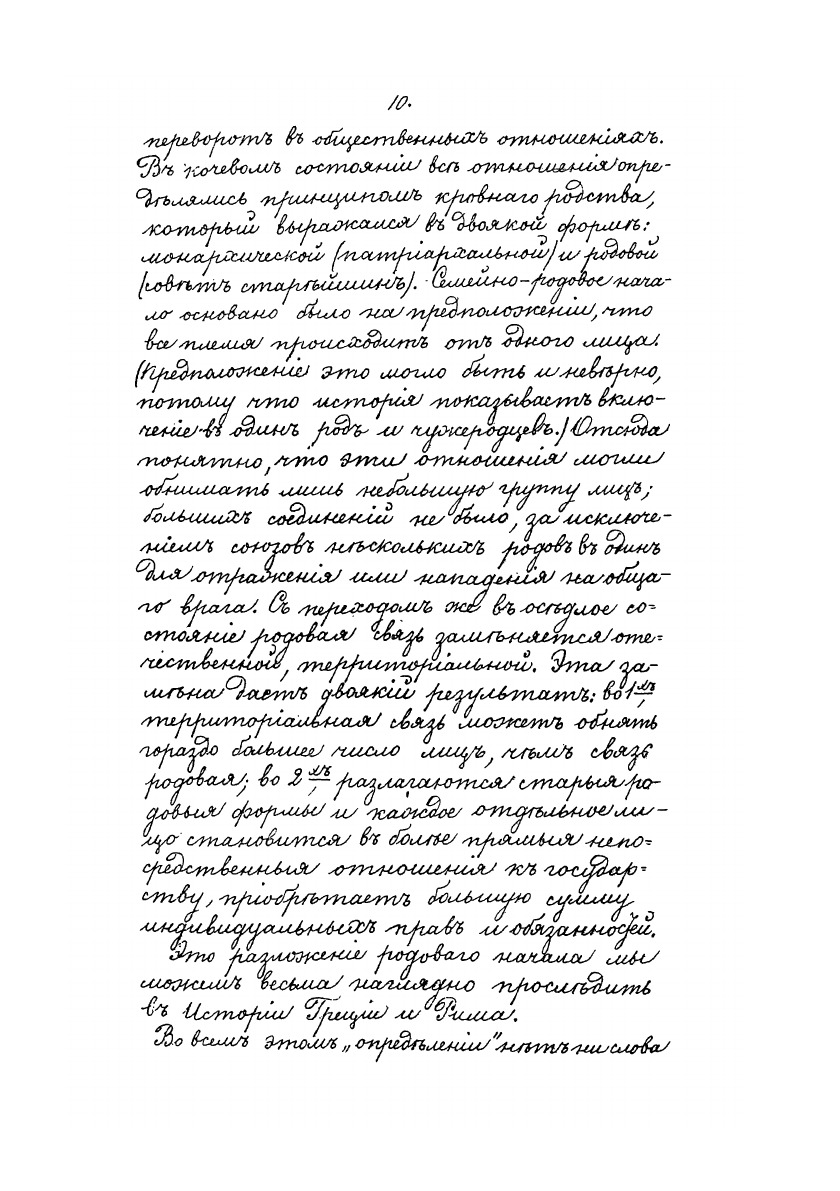 10.
переворотъ въ общественныхъ отношеніяхъ.
Въ кочевомъ состояніи всѣ отношенія опре-
дѣлялись принципомъ кровнаго родства,
который выражался въ двоякой формѣ:
монархической (патріархальной) и родовой
(совѣтъ старѣйшинъ). Семейно-родовое нача-
ло основано было на предположеніи, что
все племя происходитъ отъ одного лица.
(Предположеніе это могло быть и невѣрно,
потому что исторія показываетъ вклю-
ченіе въ одинъ родъ и чужеродцевъ.) Отсюда
понятно, что эти отношенія могли
обнимать лишь небольшую группу лицъ;
большихъ соединеній не было, за исключе-
ніемъ союзовъ нѣсколькихъ родовъ въ одинъ
для отраженія или нападенія на обща-
го врага. Съ переходомъ же въ осѣдлое со=
стояніе родовая связь замѣняется оте=
чественной, территоріальной. Эта за-
мѣна даетъ двоякій результатъ: во 1хъ,
территоріальная связь можетъ обнять
гораздо большее число лицъ, чѣмъ связь
родовая; во 2хъ, разлагаются старыя ро-
довыя формы и каждое отдѣльное ли-
цо становится въ болѣе прямыя непо=
средственныя отношенія къ государ=
ству, пріобрѣтаетъ большую сумму
индивидуальныхъ правъ и обязанностей.
Это разложеніе родоваго начала мы
можемъ весьма наглядно прослѣдить
въ Исторіи Греціи и Рима.
Во всемъ этомъ „опредѣленіи" нѣтъ ни слова